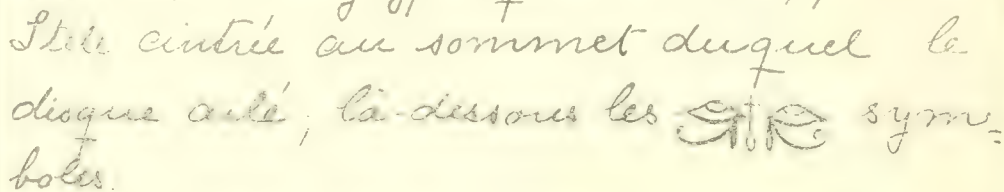 Stèle cintrée au sommet duquel le
disque ailé, là-dessous les sym=
boles.